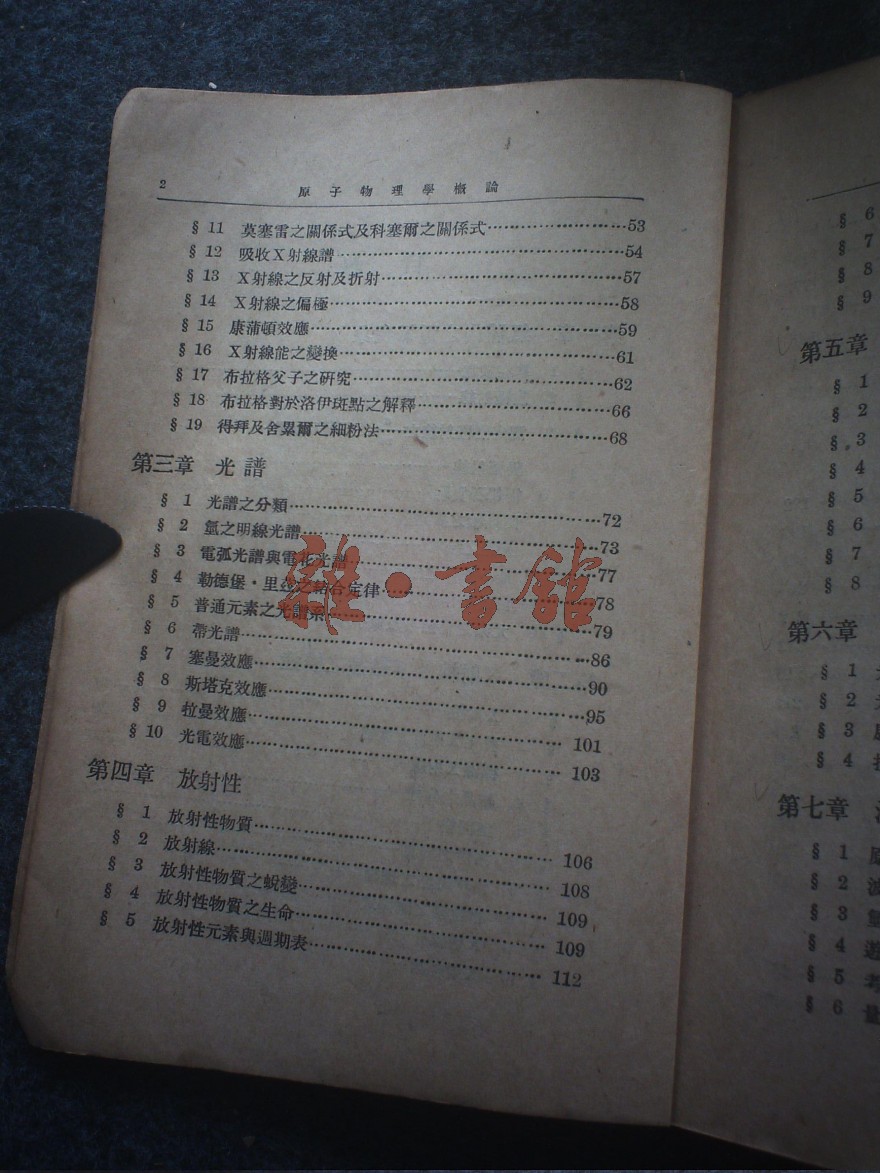 2 原子物理學概論
§ 11 莫塞雷之關係式及科塞爾之關係式……………53
§ 12 吸收X射線譜……………54
§ 13 X射線之反射及折射……………57
§ 14 X射線之偏極……………58
§ 15 康蒲頓效應……………59
§ 16 X射線能之變換……………61
§ 17 布拉格父子之研究……………62
§ 18 布拉格對於洛伊斑點之解釋……………66
§ 19 得拜及舍累爾之細粉法……………68
第三章 光譜
§ 1 光譜之分類……………72
§ 2 氫之明線光譜……………73
§ 3 電弧光譜與電花光譜……………77
§ 4 勒德堡·里茲之結合定律……………78
§ 5 普通元素之光譜系……………79
§ 6 帶光譜……………86
§ 7 塞曼效應……………90
§ 8 斯塔克效應……………95
§ 9 拉曼效應……………101
§ 10 光電效應……………103
第四章 放射性
§ 1 放射性物質……………106
§ 2 放射線……………108
§ 3 放射性物質之蛻變……………109
§ 4 放射性物質之生命……………109
§ 5 放射性元素與週期表……………112
雜·書館
§ 6
§ 7
§ 8
§ 9
第五章
§ 1
§ 2
§ 3
§ 4
§ 5
§ 6
§ 7
§ 8
第六章
§ 1
§ 2
§ 3
§ 4
第七章
§ 1
§ 2
§ 3
§ 4
§ 5
§ 6